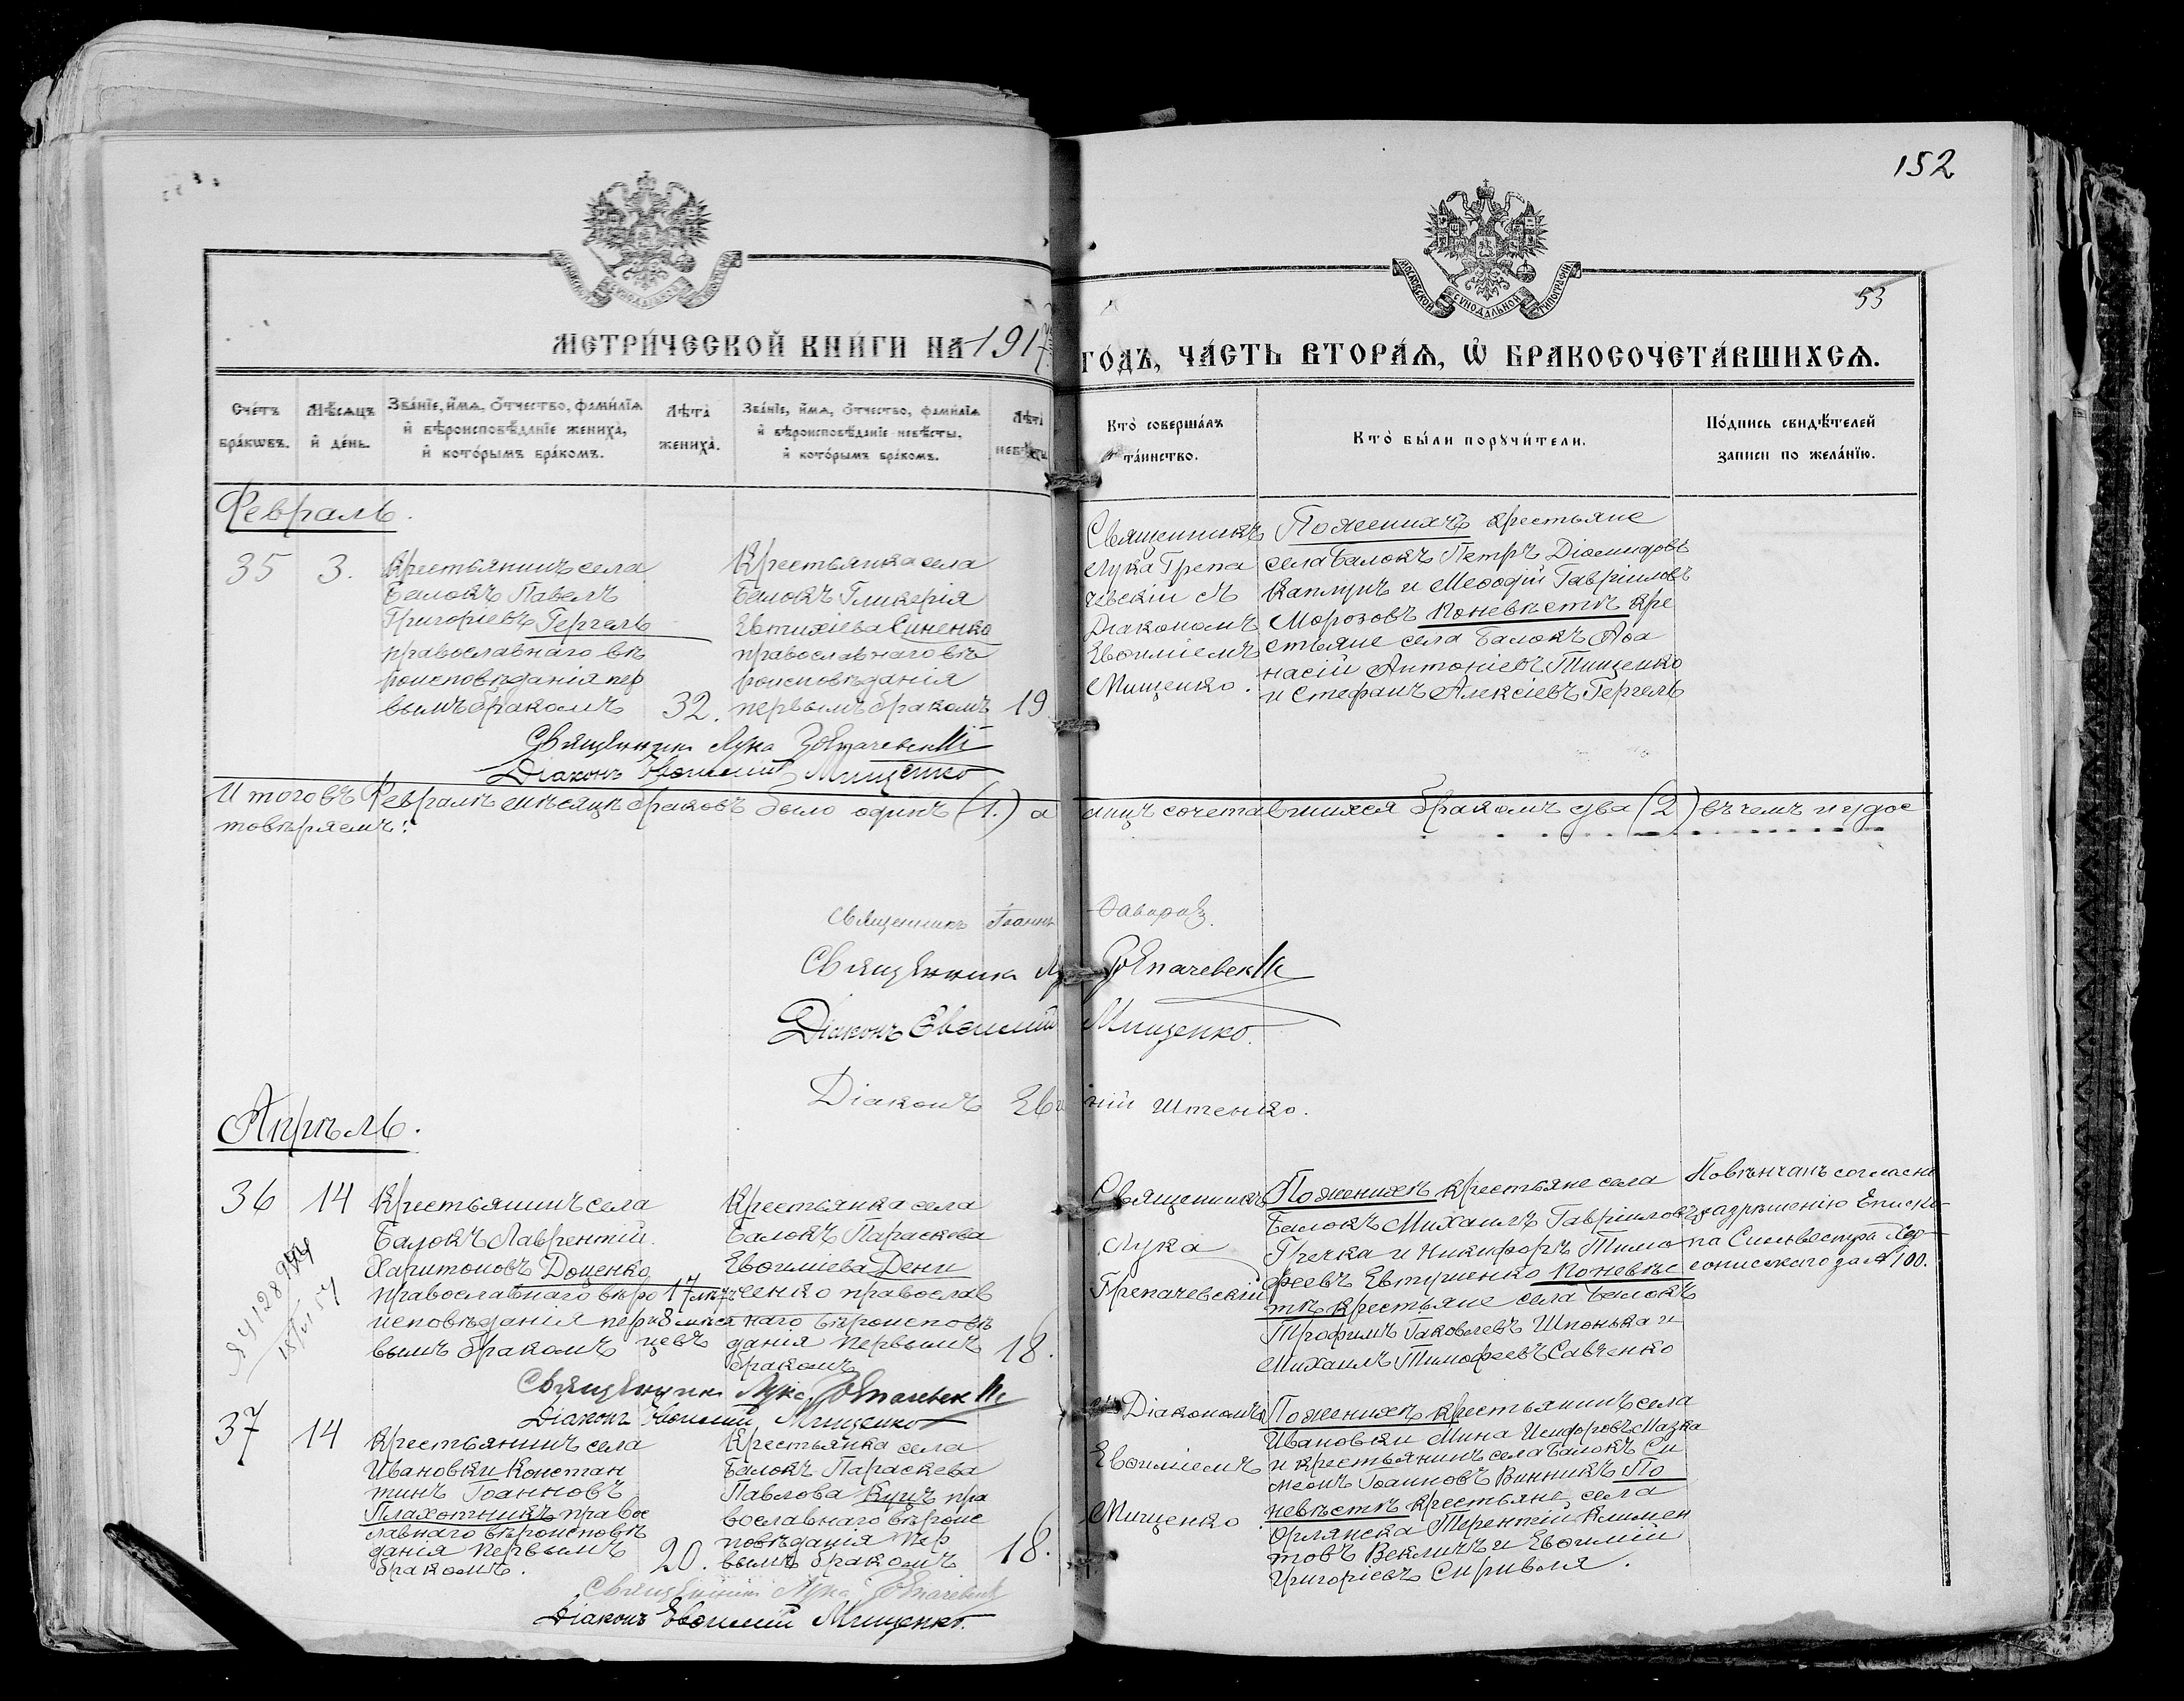 152
53
МОСКОВСКОЙ СУНОДАЛЬНОЙ ТИПОГРАФІИ
МОСКОВСКОЙ СУНОДАЛЬНОЙ ТИПОГРАФІИ
МЕТРИ́ЧЕСКОЙ КНИ́ГИ НА 1917
ГО́ДЪ, ЧА́СТЬ ВТОРА́Ѧ, Ѡ҆ БРАКОСОЧЕТА́ВШИХСѦ.
Сче́тъ бра́кѡвъ.
Мѣ́сѧцъ и҆ де́нь.
Зва́нїе, и҆́мѧ, ѻ҆́тчество, фами́лїѧ
и҆ вѣроисповѣ́данїе жениха̀,
и҆ кото́рымъ бра́комъ.
Лѣ́та жениха̀.
Зва́нїе, и҆́мѧ, ѻ҆́тчество, фами́лїѧ
и҆ вѣроисповѣ́данїе невѣ́сты,
и҆ кото́рымъ бра́комъ.
Лѣ́та невѣ́сты.
Кто̀ соверша́лъ
та́инство.
Кто̀ бы́ли порꙋчи́тели.
По́дпись свидѣ́телей
за́писи по жела́нїю.
Февраль.
35
3.
Крестьянинъ села
Балокъ Павелъ
Григоріевъ Гергель
православнаго вѣ
роисповѣданія пер
вымъ бракомъ
32.
Крестьянка села
Балокъ Гликерія
Евтихіева Синенко
православнаго вѣ
роисповѣданія
первымъ бракомъ
19
Священникъ
Лука Грепа
чевскій съ
Діакономъ
Евѳиміемъ
Мищенко.
По женихѣ крестьяне
села Балокъ Петръ Діомидовъ
Каплунъ и Меѳодій Гавріиловъ
Морозовъ по невѣстѣ кре
стьяне села Балокъ Аѳа
насій Антоніевъ Тищенко
и Стефанъ Алексіевъ Гергель
Священникъ Лука Грепачевскій
Діаконъ Евѳимій Мищенко
Итого въ Февралѣ мѣсяцѣ браковъ было одинъ (1.) а лицъ сочетавшихся бракомъ два (2) въ чемъ и удос
товѣряемъ:
Священникъ Іоаннъ
Священникъ Лука Грепачевскій
Діаконъ Евѳимій Мищенко.
Діаконъ Евгеній Штенко.
Апрѣль.
36
14
Крестьянинъ села
Балокъ Лаврентій
Харитоновъ Доценко
православнаго вѣро
исповѣданія пер
вымъ бракомъ
17 лѣтъ
и 8 мѣся
цевъ
Крестьянка села
Балокъ Параскева
Евѳиміева Дени
ченко православ
наго вѣроисповѣ
данія первымъ
бракомъ
18.
Священникъ
Лука
Грепачевскій
По женихѣ крестьяне села
Балокъ Михаилъ Гавріиловъ
Гречка и Никифоръ Тимо
феевъ Евтушенко по невѣс
тѣ крестьяне села Балокъ
Трофимъ Іаковлевъ Шпонька и
Михаилъ Тимофеевъ Савченко
Повѣнчанъ согласно
разрѣшенію Еписко
па Сильвестра Хер
сонискаго за № 100.
Священникъ Лука Грепачевскій
Діаконъ Евѳимій Мищенко
37
14
Крестьянинъ села
Ивановки Констан
тинъ Іоанновъ
Плахотникъ правос
лавнаго вѣроисповѣ
данія первымъ
бракомъ.
20.
Крестьянка села
Балокъ Параскева
Павлова Куцъ пра
вославнаго вѣроис
повѣданія пер
вымъ бракомъ
18.
Діакономъ
Евѳиміемъ
Мищенко
По женихѣ крестьянинъ села
Ивановки Мина Исидоровъ Мазка
и крестьянинъ села Балокъ Си
меонъ Іоанновъ Винникъ По
невѣстѣ крестьяне села
Орлянска Терентій Климен
товъ Векличъ и Евѳимій
Григоріевъ Сириволя.
Священникъ Лука Грепачевскій
Діаконъ Евѳимій Мищенко.